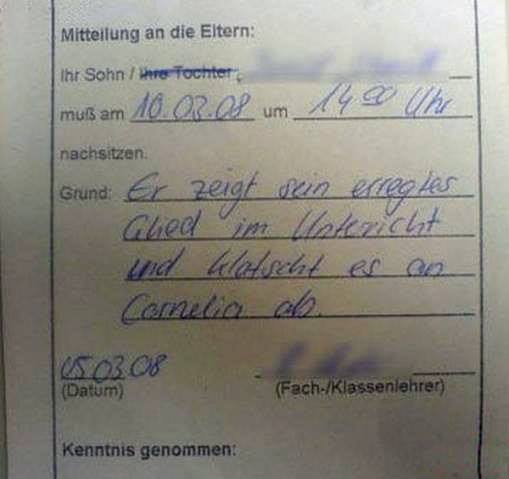 Mitteilung an die Eltern:
Ihr Sohn / Ihre Tochter,
muß am 10.03.08 um 14 00 Uhr
nachsitzen.
Grund: Er zeigt sein erregtes
Glied im Untericht
und klatscht es an
Cornelia ab.
05.03.08
(Datum) (Fach-/Klassenlehrer)
Kenntnis genommen: